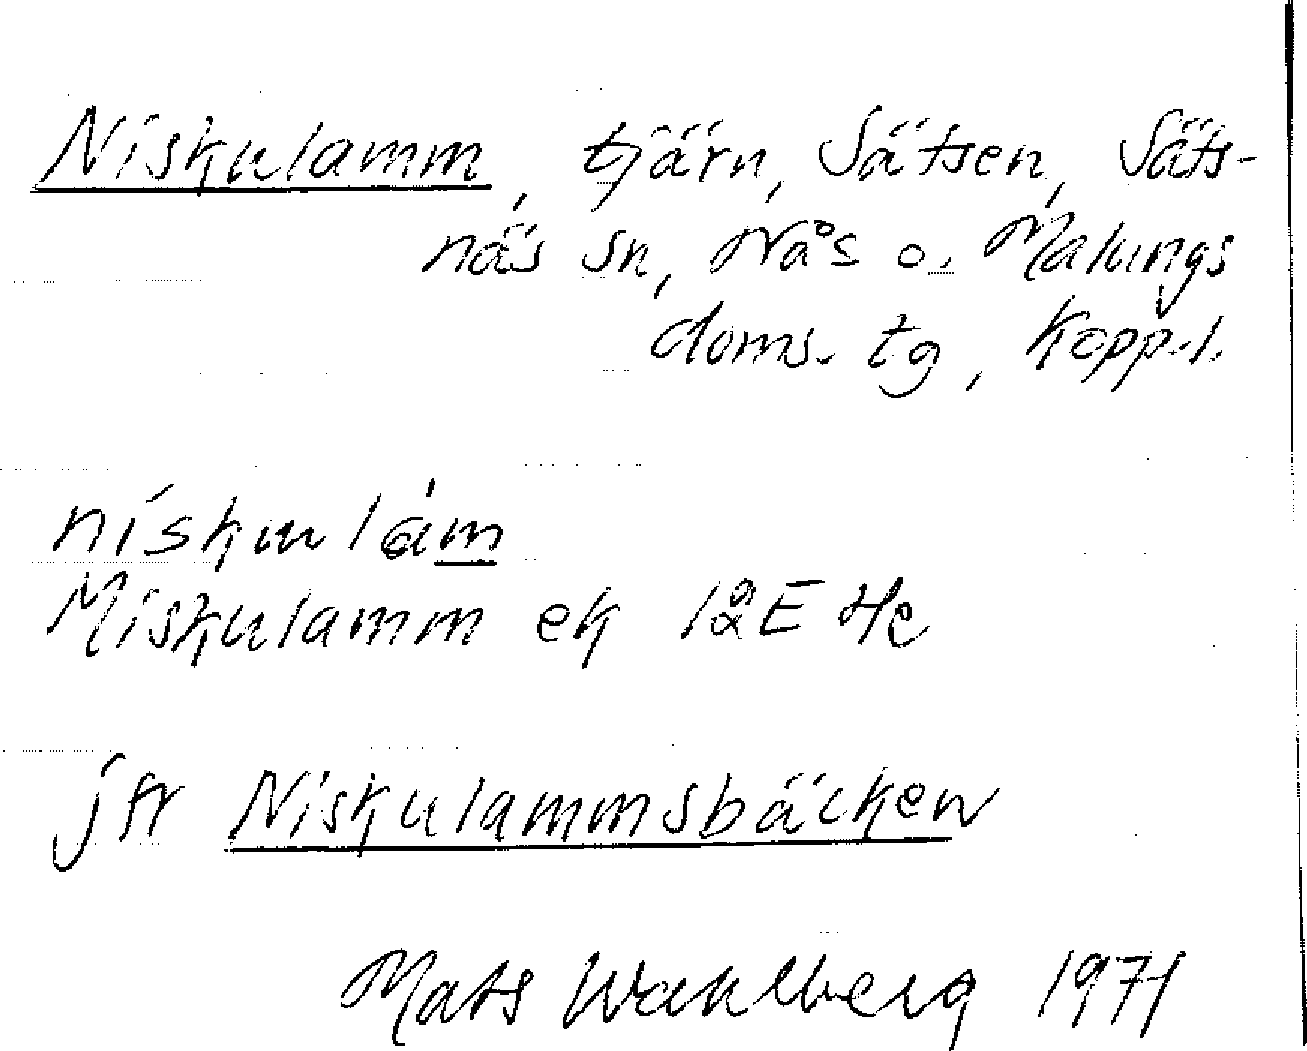 Niskulamm, tjärn, Sätsen, Säts-
näs sn, Nås o. Malungs
doms. tg, Kopp.l.
niskulam
Miskulamm ek 12E 4c
jfr Niskulammsbäcken
Mats Wahlberg 1971